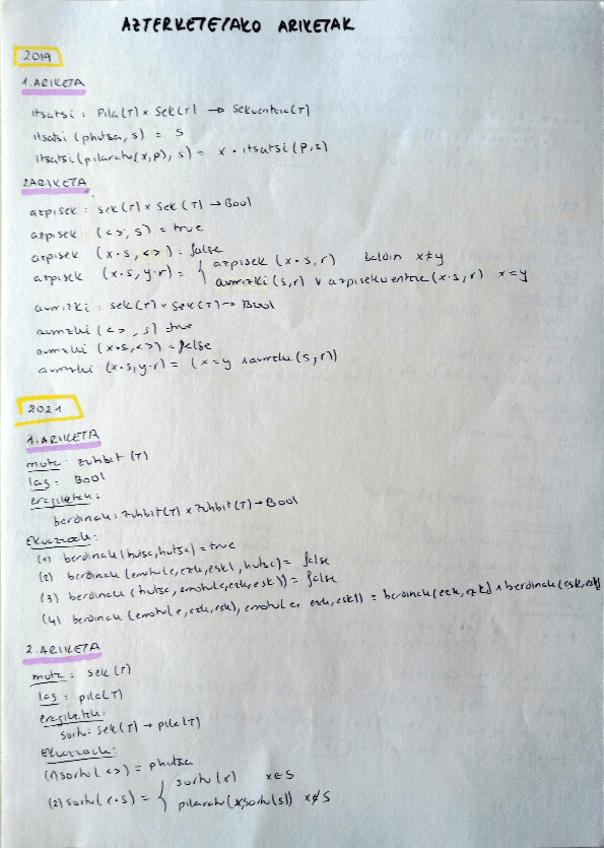 AZTERKETETAKO ARIKETAK
2019
1. ARIKETA
itsatsi : Pila(T) x Sek(T) → Sekuentzia(T)
itsatsi (phutsa, s) = s
itsatsi (pilaratu(x,p), s) = x • itsatsi (p,s)
2ARIKETA
azpisek : sek(T) x sek(T) → Bool
azpisek (<>, s) = true
azpisek (x•s, <>) = false
azpisek (x•s, y•r) = { azpisek (x•s, r) baldin x≠y
aurrizki (s,r) v azpisekuentzia (x•s, r) x=y
aurrizki : sek(T) x sek(T) → Bool
aurrizki (<>, s) = true
aurrizki (x•s, <>) = false
aurrizki (x•s, y•r) = (x=y ∧ aurrizki (s,r))
2021
1. ARIKETA
mota : zuhbit (T)
lag : Bool
eragiketak :
berdinak : zuhbit(T) x zuhbit(T) → Bool
Ekuazioak :
(1) berdinak (hutsa, hutsa) = true
(2) berdinak (errotu(e, ezk, esk), hutsa) = false
(3) berdinak (hutsa, errotu(e, ezk, esk)) = false
(4) berdinak (errotu(e, ezk, esk), errotu(e, ezk, esk)) = berdinak (ezk, ezk) ∧ berdinak (esk, esk)
2. ARIKETA
mota : sek (T)
lag : pila(T)
eragiketak :
sortu : sek(T) → pila(T)
Ekuazioak :
(1) sortu (<>) = phutsa
(2) sortu (x•s) = { sortu (x) x∈S
pilaratu (x, sortu(s)) x∉S